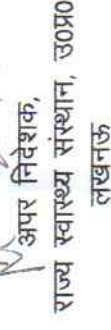 अपर निदेशक,
राज्य स्वास्थ्य संस्थान, उ0प्र0
लखनऊ